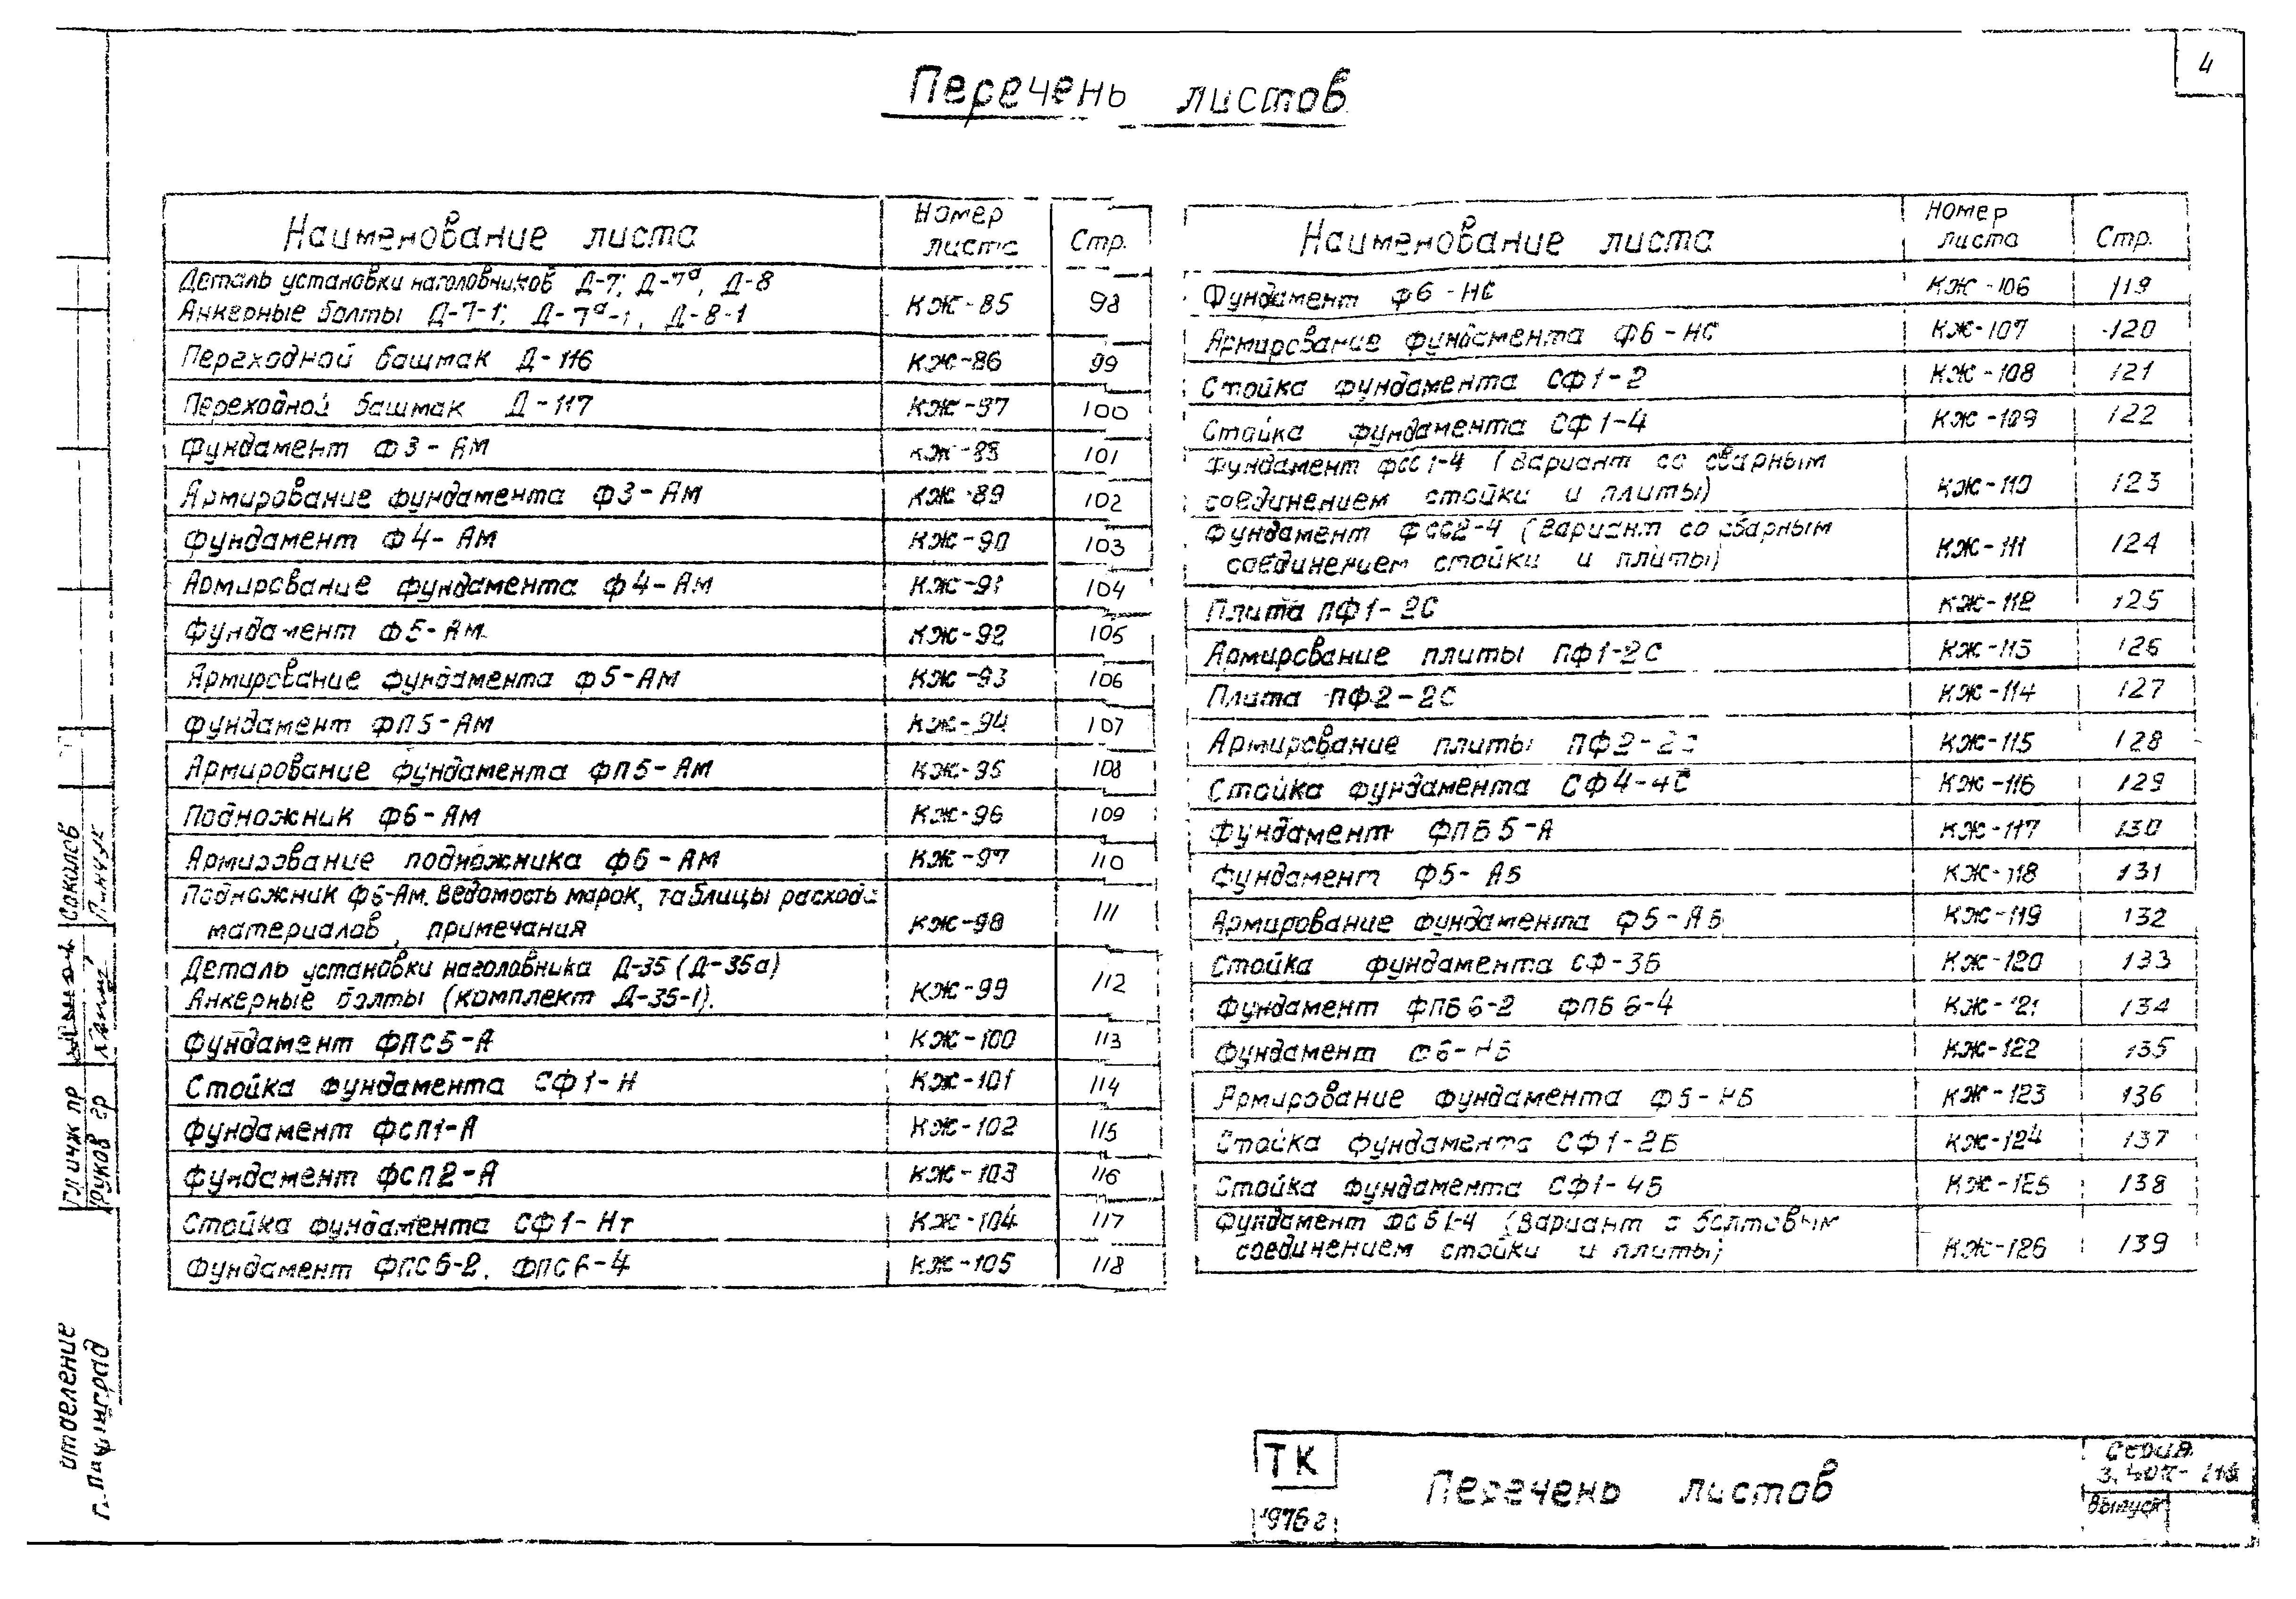 4
Перечень листов
Наименование листа Номер листа Стр.
Деталь установки наголовников Д-7; Д-7а, Д-8
Анкерные болты Д-7-1; Д-7а-1, Д-8-1 КЖ-85 98
Переходной башмак Д-116 КЖ-86 99
Переходной башмак Д-117 КЖ-87 100
Фундамент Ф3-Ам КЖ-88 101
Армирование фундамента Ф3-Ам КЖ-89 102
Фундамент Ф4-Ам КЖ-90 103
Армирование фундамента Ф4-Ам КЖ-91 104
Фундамент Ф5-Ам КЖ-92 105
Армирование фундамента Ф5-Ам КЖ-93 106
Фундамент ФП5-Ам КЖ-94 107
Армирование фундамента ФП5-Ам КЖ-95 108
Подножник Ф6-Ам КЖ-96 109
Армирование подножника Ф6-Ам КЖ-97 110
Подножник Ф6-Ам. Ведомость марок, таблицы расхода
материалов, примечания КЖ-98 111
Деталь установки наголовника Д-35 (Д-35а)
Анкерные болты (комплект Д-35-1). КЖ-99 112
Фундамент ФПС5-А КЖ-100 113
Стойка фундамента СФ1-Н КЖ-101 114
Фундамент ФСП1-А КЖ-102 115
Фундамент ФСП2-А КЖ-103 116
Стойка фундамента СФ1-Нт КЖ-104 117
Фундамент ФПС6-2, ФПС6-4 КЖ-105 118
Наименование листа Номер листа Стр.
Фундамент Ф6-НС КЖ-106 119
Армирование фундамента Ф6-НС КЖ-107 120
Стойка фундамента СФ1-2 КЖ-108 121
Стойка фундамента СФ1-4 КЖ-109 122
Фундамент ФСС1-4 (Вариант со сварным
соединением стойки и плиты) КЖ-110 123
Фундамент ФСС2-4 (Вариант со сварным
соединением стойки и плиты) КЖ-111 124
Плита ПФ1-2С КЖ-112 125
Армирование плиты ПФ1-2С КЖ-113 126
Плита ПФ2-2С КЖ-114 127
Армирование плиты ПФ2-2С КЖ-115 128
Стойка фундамента СФ4-4С КЖ-116 129
Фундамент ФПБ5-А КЖ-117 130
Фундамент Ф5-АБ КЖ-118 131
Армирование фундамента Ф5-АБ КЖ-119 132
Стойка фундамента СФ-3Б КЖ-120 133
Фундамент ФПБ6-2 ФПБ6-4 КЖ-121 134
Фундамент Ф6-НБ КЖ-122 135
Армирование фундамента НБ КЖ-123 136
Стойка фундамента СФ1-2Б КЖ-124 137
Стойка фундамента СФ1-4Б КЖ-125 138
Фундамент ФСБ1-4 (Вариант с болтовым
соединением стойки и плиты) КЖ-126 139
Гл инж пр Соколов
Руков гр
отделение
ТК
1976г
Перечень листов
Серия
Выпуск